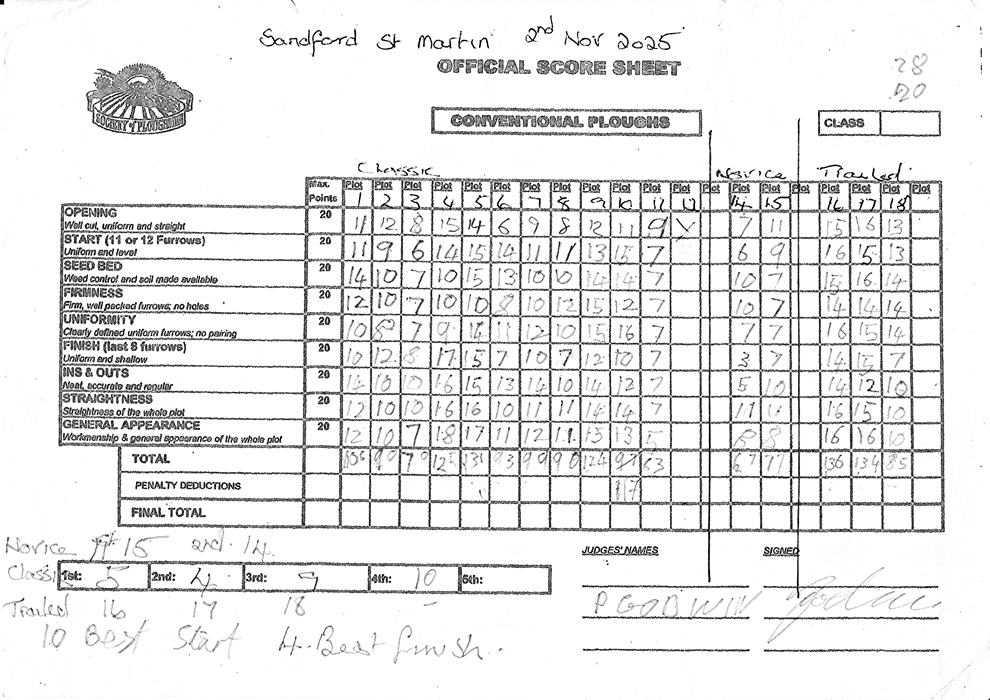 Sandford St Martin 2nd Nov 2025
OFFICIAL SCORE SHEET
28
20
SOCIETY of PLOUGHMEN
CONVENTIONAL PLOUGHS
CLASS
Classic Novice Trailed
Max. Points Plot 1 Plot 2 Plot 3 Plot 4 Plot 5 Plot 6 Plot 7 Plot 8 Plot 9 Plot 10 Plot 11 Plot 12 Plot Plot 14 Plot 15 Plot Plot 16 Plot 17 Plot 18 Plot
OPENING 20 11 12 8 15 14 6 9 8 12 11 9 7 11 15 16 13
Well cut, uniform and straight
START (11 or 12 Furrows) 20 11 9 6 14 15 14 11 11 13 15 7 6 9 16 15 13
Uniform and level
SEED BED 20 14 10 7 10 15 13 10 10 14 14 7 10 7 15 16 14
Weed control and soil made available
FIRMNESS 20 12 10 7 10 10 8 10 12 15 12 7 10 7 14 14 14
Firm, well packed furrows; no holes
UNIFORMITY 20 10 8 7 9 14 11 12 10 15 16 7 7 7 16 15 14
Clearly defined uniform furrows; no pairing
FINISH (last 8 furrows) 20 10 12 8 17 15 7 10 7 12 10 7 3 7 14 15 7
Uniform and shallow
INS & OUTS 20 14 10 10 16 15 13 14 10 14 12 7 5 10 14 12 10
Neat, accurate and regular
STRAIGHTNESS 20 12 10 10 16 16 10 11 11 14 14 7 11 11 16 15 10
Straightness of the whole plot
GENERAL APPEARANCE 20 12 10 7 18 17 11 12 11 15 13 5 8 8 16 16 10
Workmanship & general appearance of the whole plot
TOTAL 106 90 70 125 131 93 99 90 124 97 63 67 77 136 134 85
PENALTY DEDUCTIONS 117
FINAL TOTAL
Novice 1st 15 2nd. 14.
JUDGES' NAMES SIGNED
Classic 1st: 5 2nd: 4 3rd: 9 4th: 10 5th:
Trailed 16 17 18 -
P GODWIN
10 Best Start 4. Best finish.